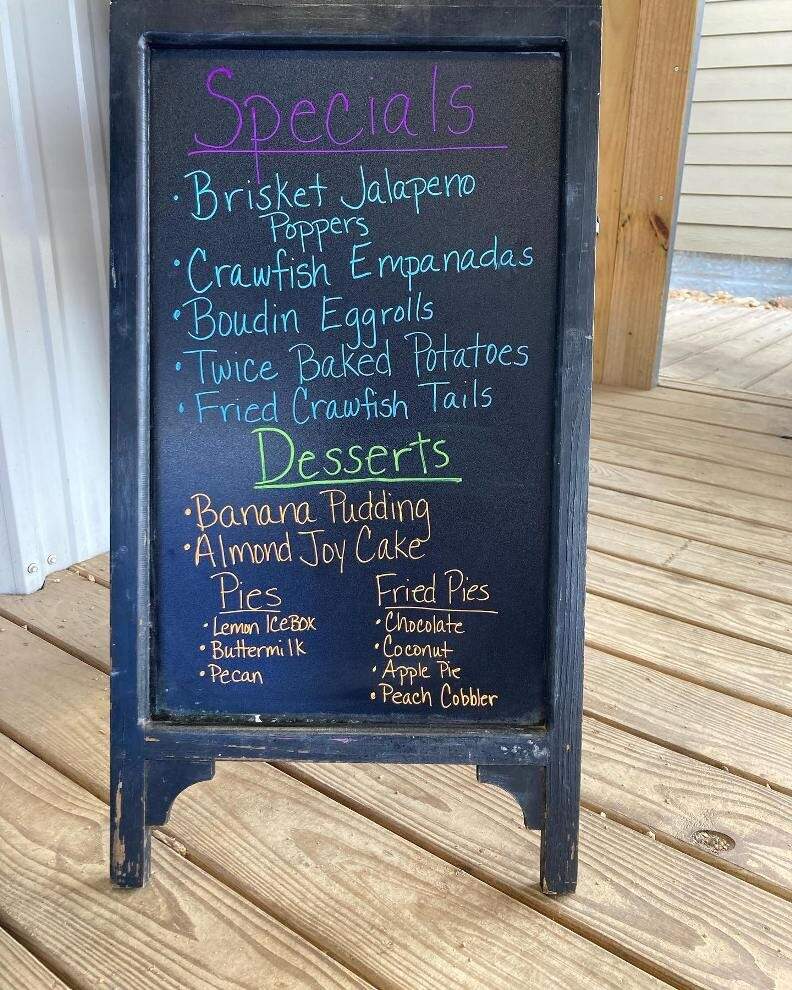 Specials
• Brisket Jalapeno
Poppers
• Crawfish Empanadas
• Boudin Eggrolls
• Twice Baked Potatoes
• Fried Crawfish Tails
Desserts
• Banana Pudding
• Almond Joy Cake
Pies
• Lemon IceBox
• Buttermilk
• Pecan
Fried Pies
• Chocolate
• Coconut
• Apple Pie
• Peach Cobbler